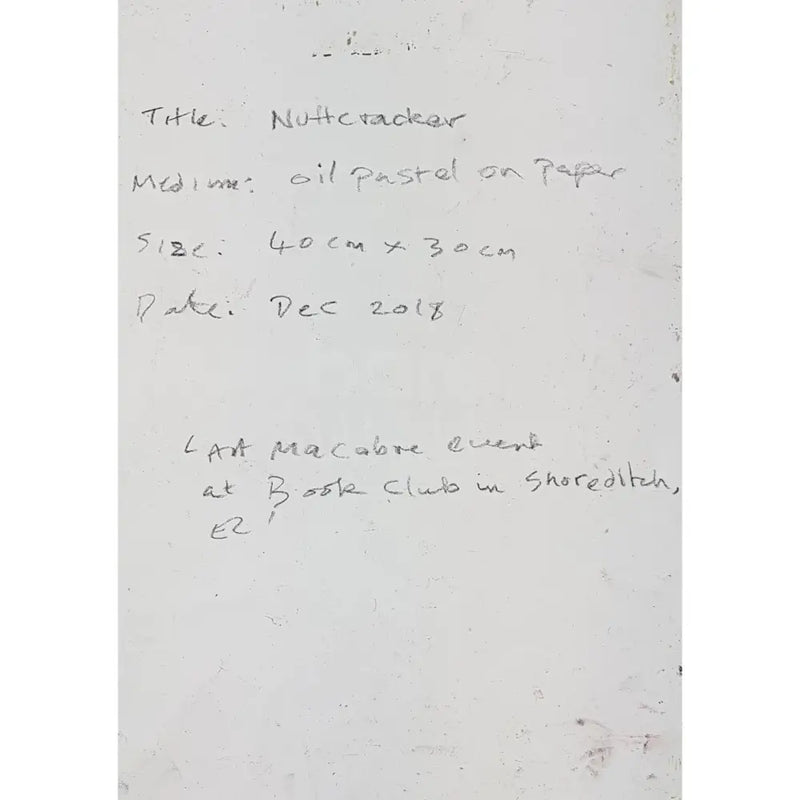 Title: Nuttcracker
Medium: oil pastel on Paper
Size: 40cm x 30cm
Date: Dec 2018
'Art Macabre event
at Book Club in Shoreditch,
E2'